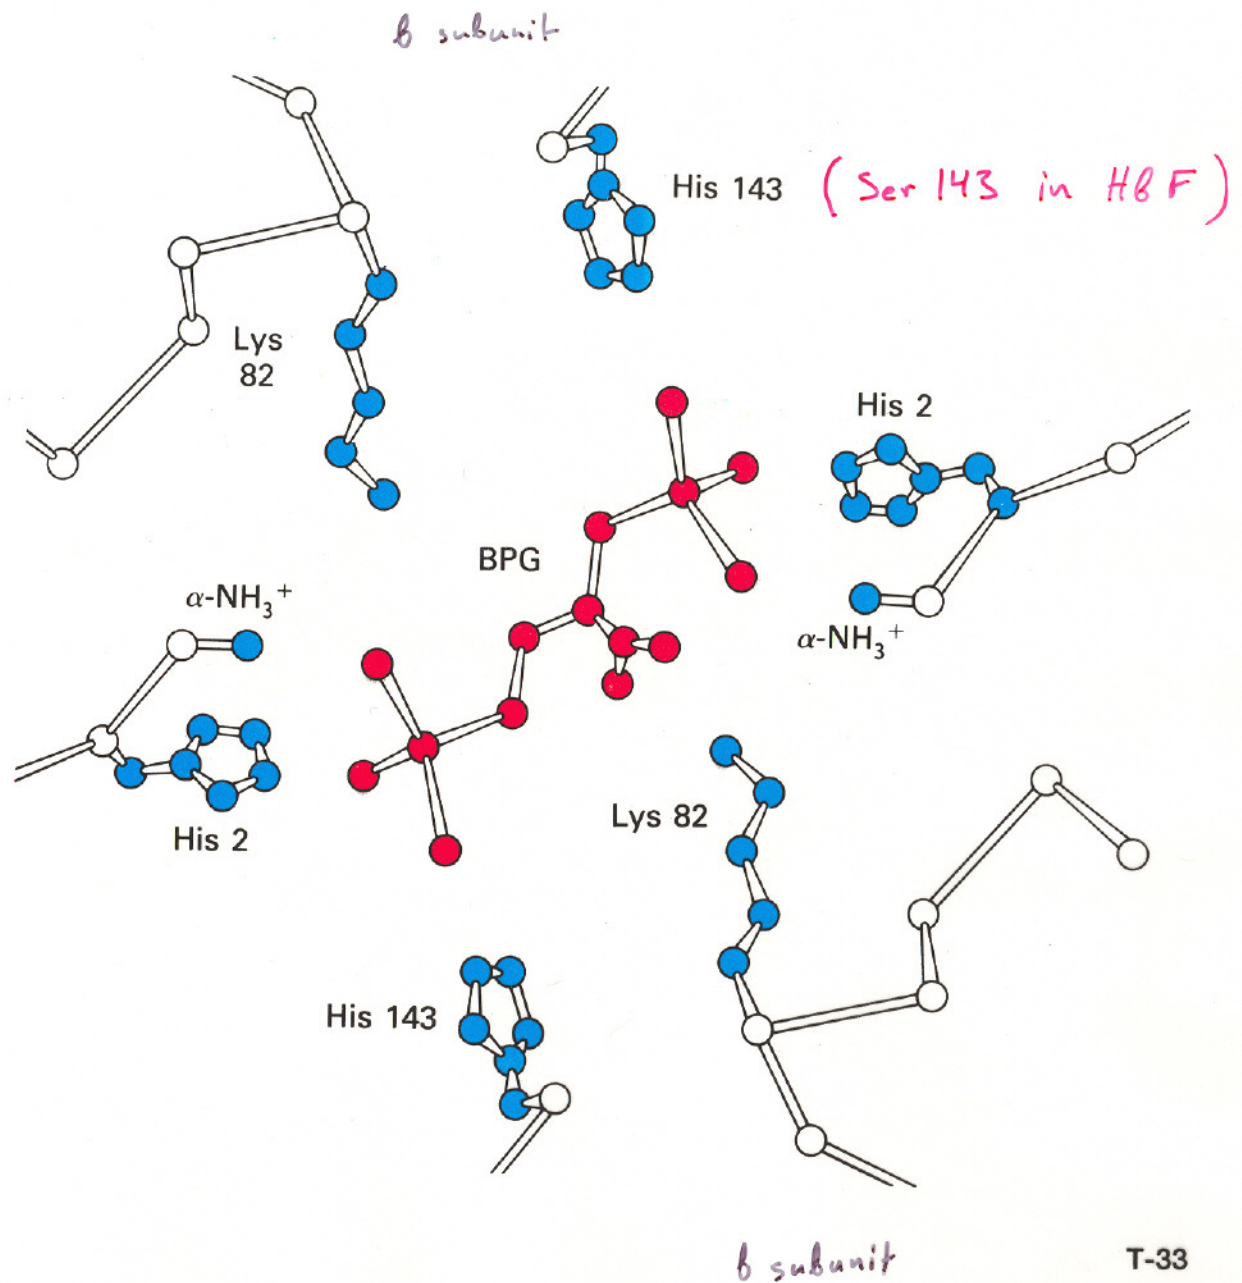 b subunit
His 143 (Ser 143 in HbF)
Lys
82
His 2
BPG
α-NH₃⁺
α-NH₃⁺
Lys 82
His 2
His 143
b subunit
T-33